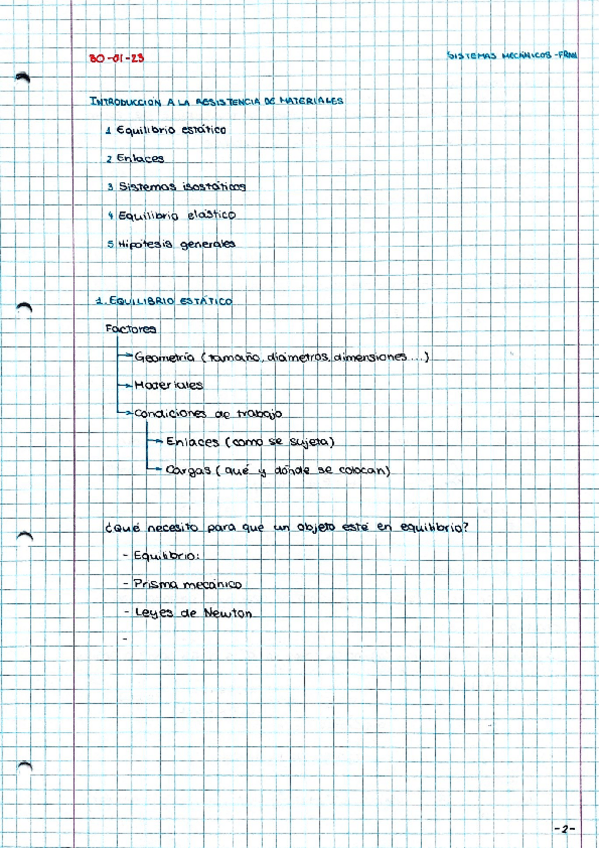 30-01-23
SISTEMAS MECÁNICOS - FRAN
INTRODUCCIÓN A LA RESISTENCIA DE MATERIALES
1 Equilibrio estático
2 Enlaces
3 Sistemas isostáticos
4 Equilibrio elástico
5 Hipótesis generales
1. EQUILIBRIO ESTÁTICO
Factores
Geometría (tamaño, diámetros, dimensiones...)
Materiales
Condiciones de trabajo
Enlaces (como se sujeta)
Cargas (qué y dónde se colocan)
¿Qué necesito para que un objeto esté en equilibrio?
- Equilibrio:
- Prisma mecánico
- Leyes de Newton
-
-2-